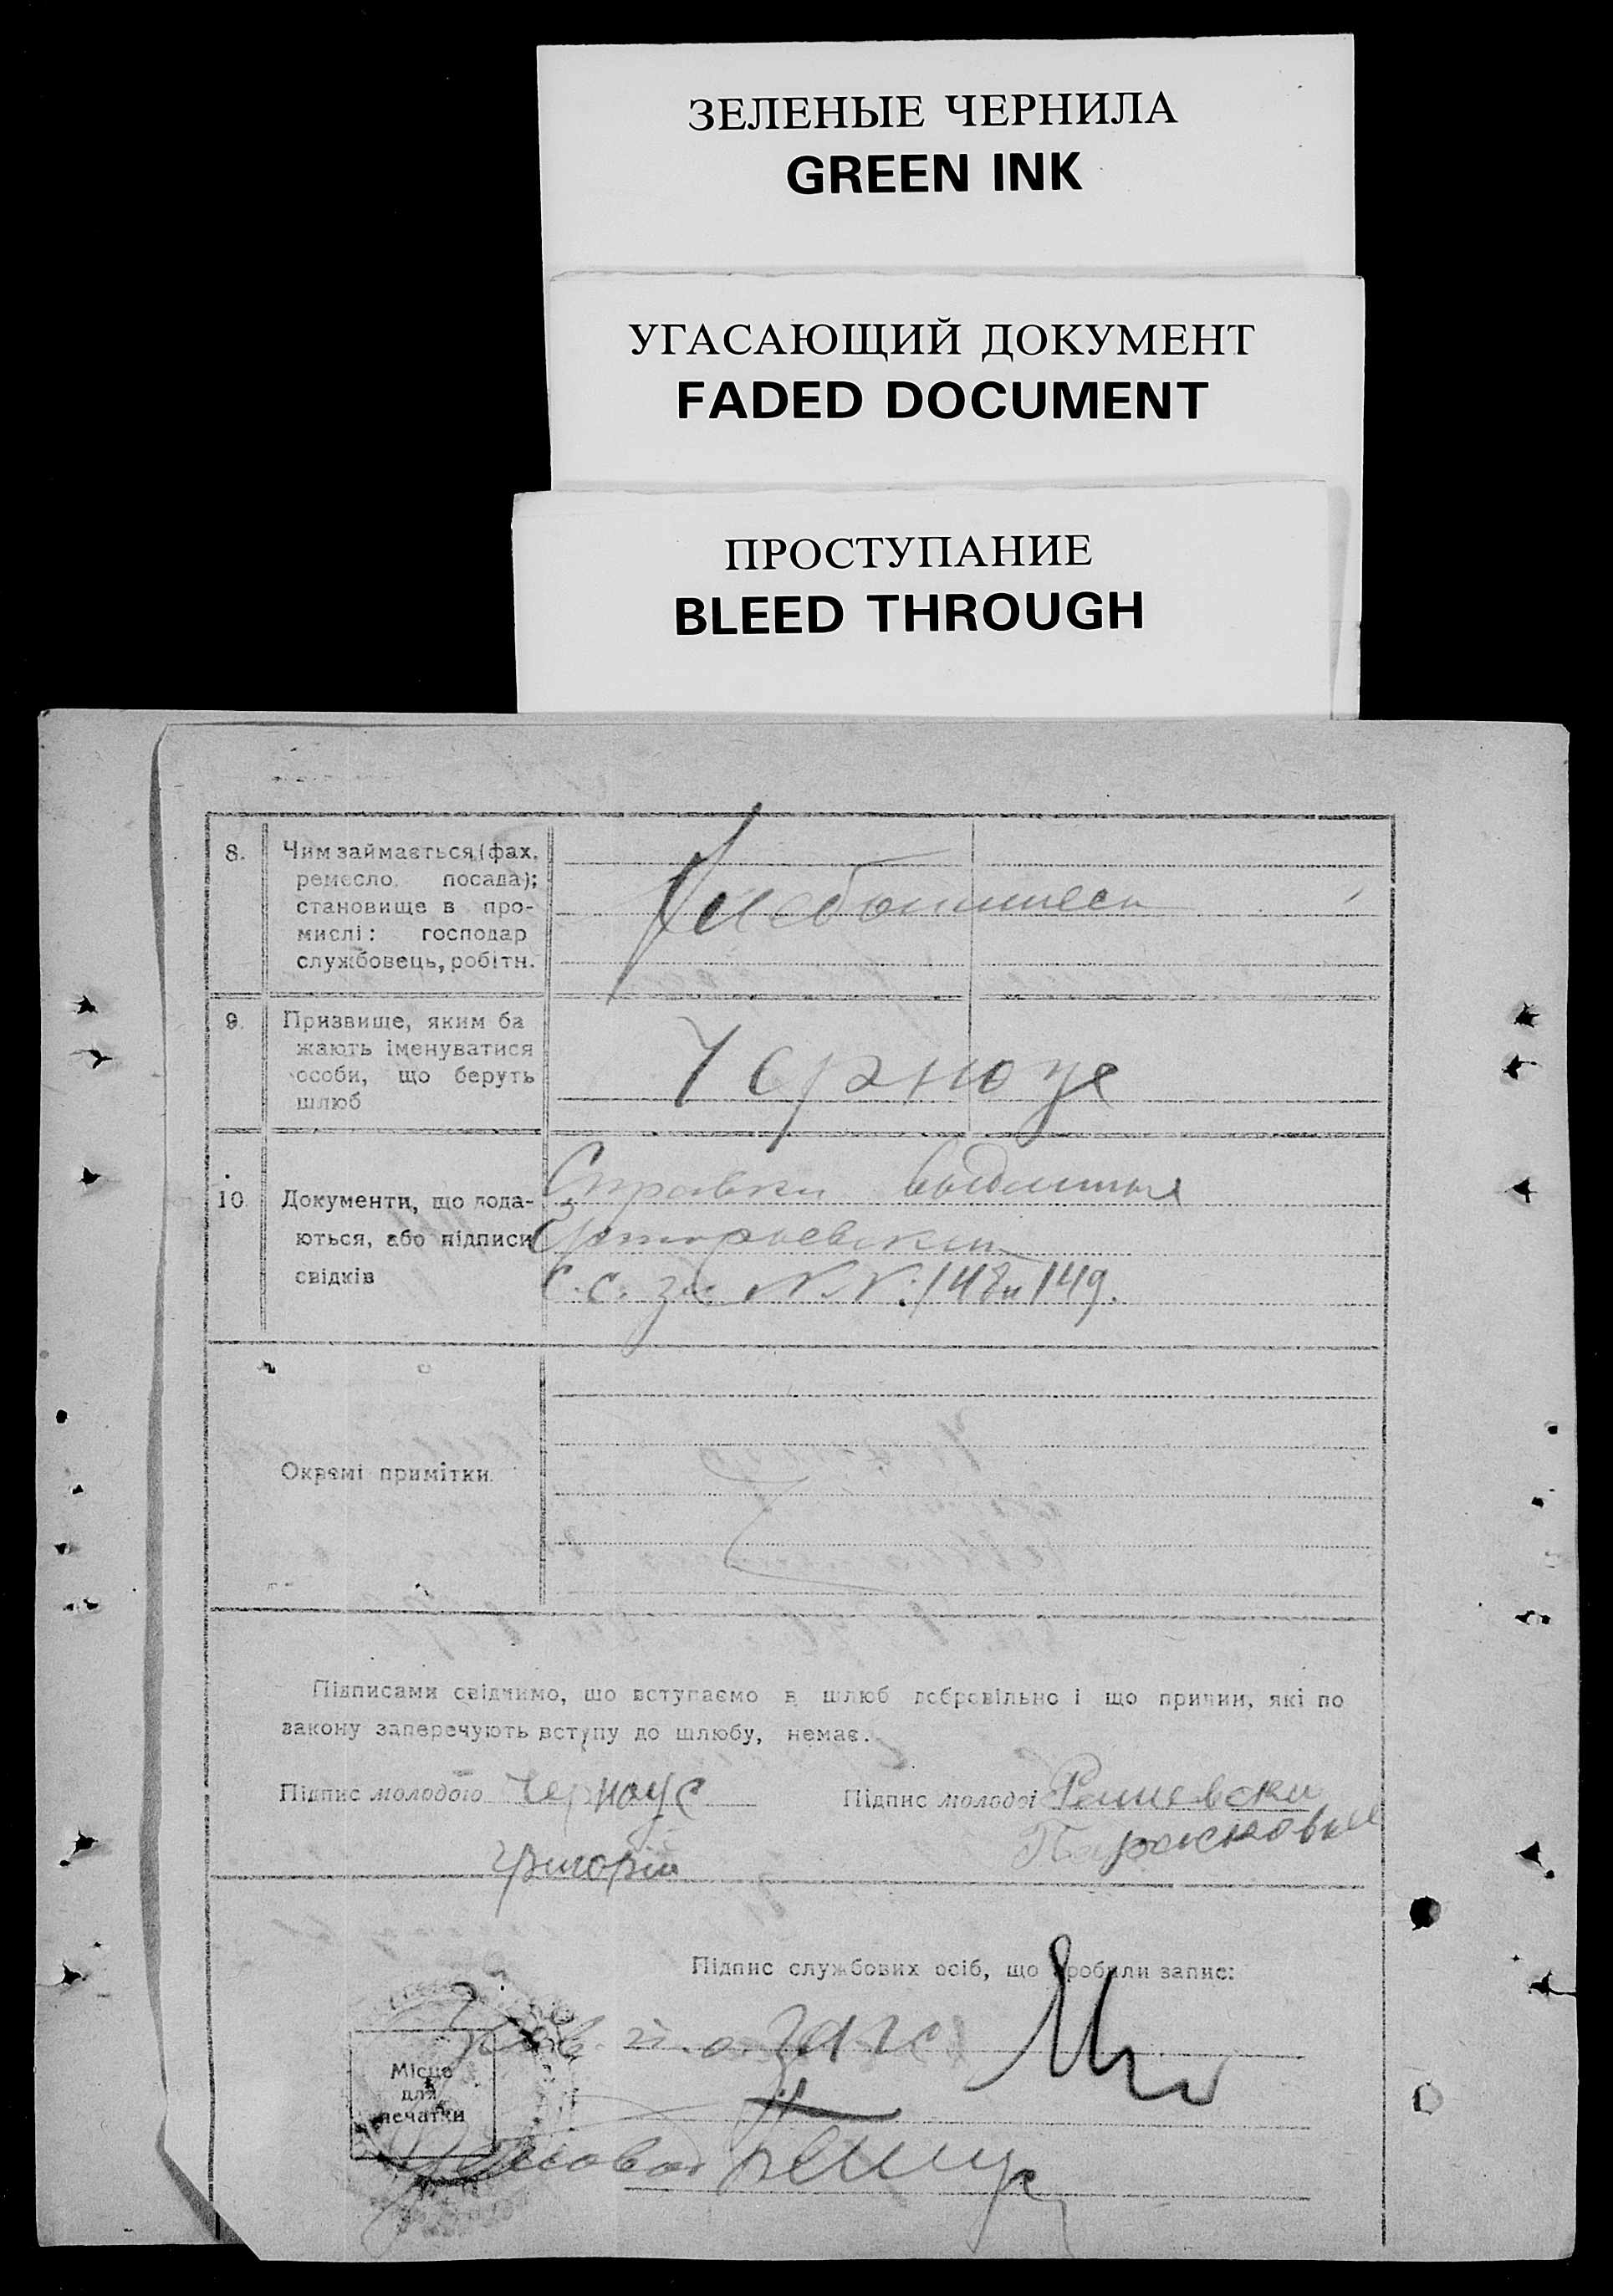 ЗЕЛЕНЫЕ ЧЕРНИЛА
GREEN INK
УГАСАЮЩИЙ ДОКУМЕНТ
FADED DOCUMENT
ПРОСТУПАНИЕ
BLEED THROUGH
8. Чим займається (фах,
ремесло, посада);
становище в про-
мислі: господар
службовець, робітн.
9. Призвище, яким ба
жають іменуватися
особи, що беруть
шлюб
Черноус
10 Документи, що дода-
ються, або підписи
свідків
Справки выданные
с.с. за N.N: 148 и 149.
Окремі примітки.
Підписами свідчимо, шо вступаємо в шлюб добровільно і що причин, які по
закону заперечують вступу до шлюбу, немає.
Підпис молодого Черноус
Григорій
Підпис молодої
Підпис службових осіб, що зробили запис:
Місце
для
печатки
Зав. ЗАГС